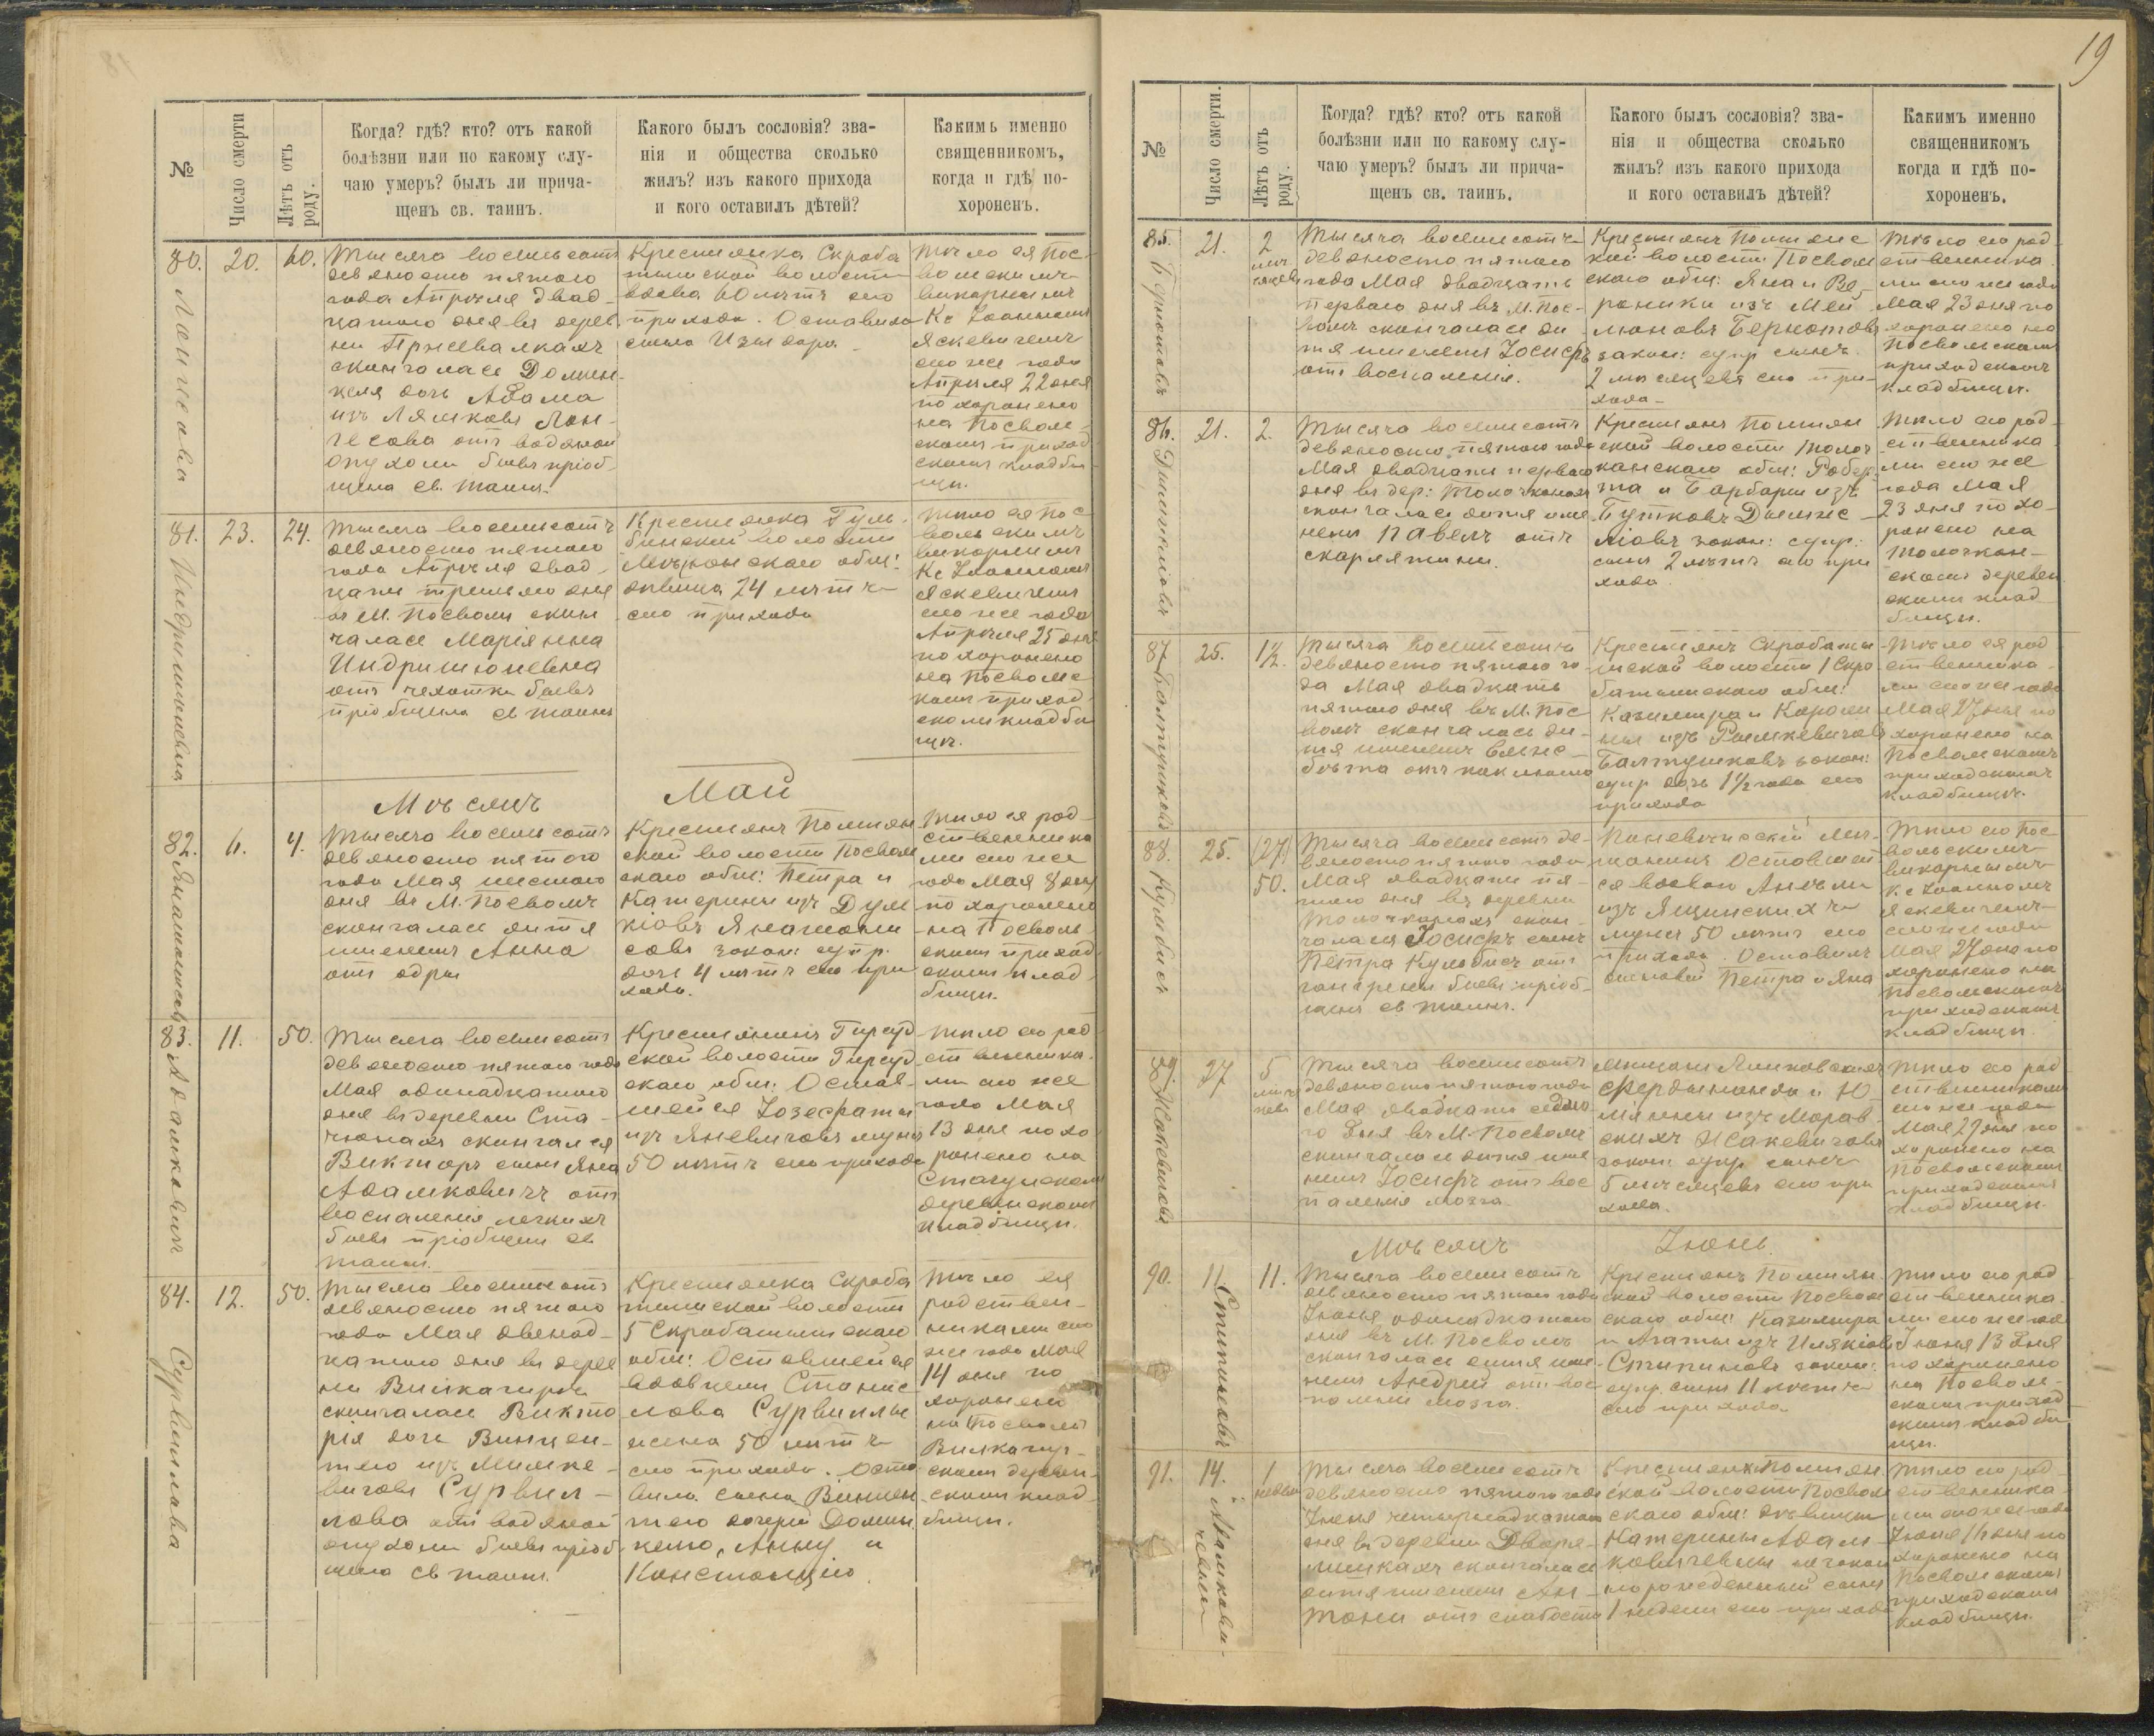 19
№
Число смерти
Лѣтъ отъ роду.
Когда? гдѣ? кто? отъ какой
болѣзни или по какому слу-
чаю умеръ? былъ ли прича-
щенъ св. таинъ.
Какого былъ сословія? зва-
нія и общества сколько
жилъ? изъ какого прихода
и кого оставилъ дѣтей?
Какимъ именно
священникомъ,
когда и гдѣ по-
хороненъ.
80.
20.
60.
Тысяча восемьсотъ
девяносто пятого
года Апрѣля двад-
цатого дня въ дерев
ни
скончалась Домин-
целя дочь Адама
изъ Лямковъ Лон-
гесова отъ водяной
опухоли бывъ пріоб-
щена св. таинъ.
Крестьянка Скроба
тишской волости
вдова 60 лѣтъ сего
прихода. Оставила
сына Изыдора
Тѣло ея Пос-
вольскимъ
викарнымъ
Кс Іоанномъ
Яскевичемъ
сего же года
Апрѣля 22 дня
похоронено
на Посволь-
скомъ приход-
скомъ кладби-
щѣ.
81.
Индришюневна
23.
24.
Тысяча восемьсотъ
девяносто пятого
года Апрѣля двад-
цать третьяго дня
въ М. Посволи скон
чалась Маріянна
Индришюневна
отъ чахотки бывъ
пріобщена св таинъ
Крестьянка Гуль-
бинской волости
общ:
дѣвица 24 лѣтъ
сего прихода
Тѣло ея Пос-
вольскимъ
викарнымъ
Кс Іоанномъ
Яскевичемъ
сего же года
Апрѣля 25 дня
похоронено
на Посволь-
скомъ приход-
скомъ кладби
щѣ.
Мѣсяцъ
Май
82.
6.
4.
Тысяча восемьсотъ
девяносто пятого
года Мая шестого
дня въ М. Посволѣ
скончалась дитя
именемъ Анна
отъ одри
Крестьянъ Помпян
ской волости Посволь
скаго общ: Петра и
Катерины изъ Дум
кіовъ
закон: супр.
дочь 4 лѣтъ сего при
хода.
Тѣло ея род-
ственника
ми сего же
года Мая 8 дня
похоронено
на Посволь
скомъ приход
скомъ клад
бищѣ.
83.
Адамковичъ
11.
50.
Тысяча восемьсотъ
девяносто пятого года
Мая одинадцатого
дня въ деревни Ста-
чюнахъ скончался
Викторъ сынъ Яна
Адамковичъ отъ
воспаленія легкихъ
бывъ пріобщенъ св
таинъ.
Крестьянинъ Гирсуд
ской волости Гирсуд
скаго общ: Остав-
шейся Іозефаты
изъ Яневичовъ мужъ
50 лѣтъ сего прихода
Тѣло его род
ственника-
ми сего же
года Мая
13 дня похо
ронено на
деревенскомъ
кладбищѣ.
84.
Сурвиллова
12.
50.
Тысяча восемьсотъ
девяносто пятого
года Мая двенад-
цатого дня въ дерев
ни
скончалась Викто
рія дочь Винцен-
тего изъ Мишке-
вичовъ Сурвил-
лова отъ водяной
опухоли бывъ пріоб
щена св таинъ.
Крестьянка Скроба
тишской волости
Скробатишскаго
общ: Оставшейся
вдовцемъ Станис-
лова Сурвиллы
жена 50 лѣтъ
сего прихода. Оста
вила сына Винцен
тего дочерей Домицелю, Анну и
Констанцію.
Тѣло ея
родствен-
никами сего
же года Мая
14 дня по
хоронено
скомъ деревен-
скомъ клад-
бищѣ.
№
Число смерти.
Лѣтъ отъ роду.
Когда? гдѣ? кто? отъ какой
болѣзни или по какому слу-
чаю умеръ? былъ ли прича-
щенъ св. таинъ.
Какого былъ сословія? зва-
нія и общества сколько
жилъ? изъ какого прихода
и кого оставилъ дѣтей?
Какимъ именно
священникомъ
когда и гдѣ по-
хороненъ.
85.
Бернотовъ
21.
2
мѣ-
сяцевъ
Тысяча восемьсотъ
девяносто пятого
года Мая двадцать
перваго дня въ М. Пос-
волѣ скончалась ди
тя именемъ Іосифъ
отъ воспаленія.
Крестьянъ Помпянс
кой волости Посволь
скаго общ: Яна и Ве-
роники изъ Мей
люновъ Бернотовъ
закон: супр сынъ
2 мѣсяцевъ сего при-
хода
Тѣло его род-
ственника
ми сего же года
Мая 23 дня по
хоронено на
Посвольскомъ
приходскомъ
кладбищѣ.
86.
21.
2.
Тысяча восемьсотъ
девяносто пятого года
Мая двадцать перваго
дня въ дер: Толочконахъ
скончалась дитя име
немъ Павелъ отъ
скарлятини.
Крестьянъ Помпян
ской волости Толоч
канскаго общ: Робер
та и Барбары изъ
Путковъ
закон: супр:
сынъ 2 лѣтъ сего при
хода
Тѣло его род-
ственника
ми сего же
года Мая
23 дня похо-
ронено на
Толочкон-
скомъ деревен
скомъ клад
бищѣ.
87.
Балтушковъ
25.
1½.
Тысяча восемьсотъ
девяносто пятого го
да Мая двадцать
пятого дня въ М. Пос
волѣ скончалась ди-
тя именемъ Елис-
бѣта отъ коклюша
Крестьянъ Скробаты
шской волости Скро
батышскаго общ:
Казимира и Кароли
ны изъ Рымкевичовъ
Балтушковъ закон:
супр дочь 1½ года сего
прихода
Тѣло ея род
ственника-
ми сего же года
Мая 27 дня по
хоронено на
Посвольскомъ
приходскомъ
кладбищѣ.
88.
25.
(27)
50.
Тысяча восемьсотъ де-
вяносто пятого года
Мая двадцать пя-
того дня въ деревни
Толочконахъ скон-
чался Іосифъ сынъ
Петра отъ
гангрены бывъ пріоб-
щенъ св таинъ.
Поневѣжскій мѣ-
щанинъ Оставшей
ся вдовою Анѣли
изъ Ящинскихъ
мужъ 50 лѣтъ сего
прихода. Оставилъ
сыновей Петра и Яна
Тѣло его Пос
вольскимъ
викарнымъ
Кс Іоанномъ
Яскевичемъ
сего же года
Мая 27 дня по
хоронено на
Посвольскомъ
приходскомъ
кладбищѣ.
89.
27
5
мѣся
цевъ
Тысяча восемьсотъ
девяносто пятого года
Мая двадцать седьмо
го дня въ М. Посволѣ
скончалась дитя име
немъ Іосифъ отъ вос
паленія мозга.
Мѣщанъ
Фердинанда и Ю-
ліянны изъ Морав-
скихъ Исакевичовъ
закон: супр. сынъ
5 мѣсяцевъ сего при
хода.
Тѣло его род
ственниками
сего же года
Мая 29 дня по
хоронено на
Посвольскомъ
приходскомъ
кладбищѣ.
Мѣсяцъ
Іюнь.
90.
Стипиновъ
11.
11.
Тысяча восемьсотъ
девяносто пятого года
Іюня одинадцатого
дня въ М. Посволѣ
скончалась дитя име-
немъ Андрей отъ вос-
полени мозга.
Крестьянъ Помпян
ской волости Посволь
скаго общ: Казимира
и Агаты изъ Илякіовъ
Стипиновъ закон:
супр. сынъ 11 лѣтъ
сего прихода
Тѣло его род
ственника
ми сего же года
Іюня 13 дня
похоронено
на Посволь-
скомъ приход
скомъ кладби
щѣ.
91.
Адамкови-
чевны
14.
1
недѣли
Тысяча восемьсотъ
девяносто пятого года
Іюня четырнадцатого
дня въ деревни Дворя-
нишкахъ скончалась
дитя именемъ Ан-
тони отъ слабости
Крестьянки Помпян
ской волости Посволь
скаго общ: дѣвицы
Катерины Адам-
ковичевны незакон
норожденный сынъ
1 недели сего прихода
Тѣло его род-
ственника
ми сего же года
Іюня 16 дня по
хоронено на
Посвольскомъ
приходскомъ
кладбищѣ.